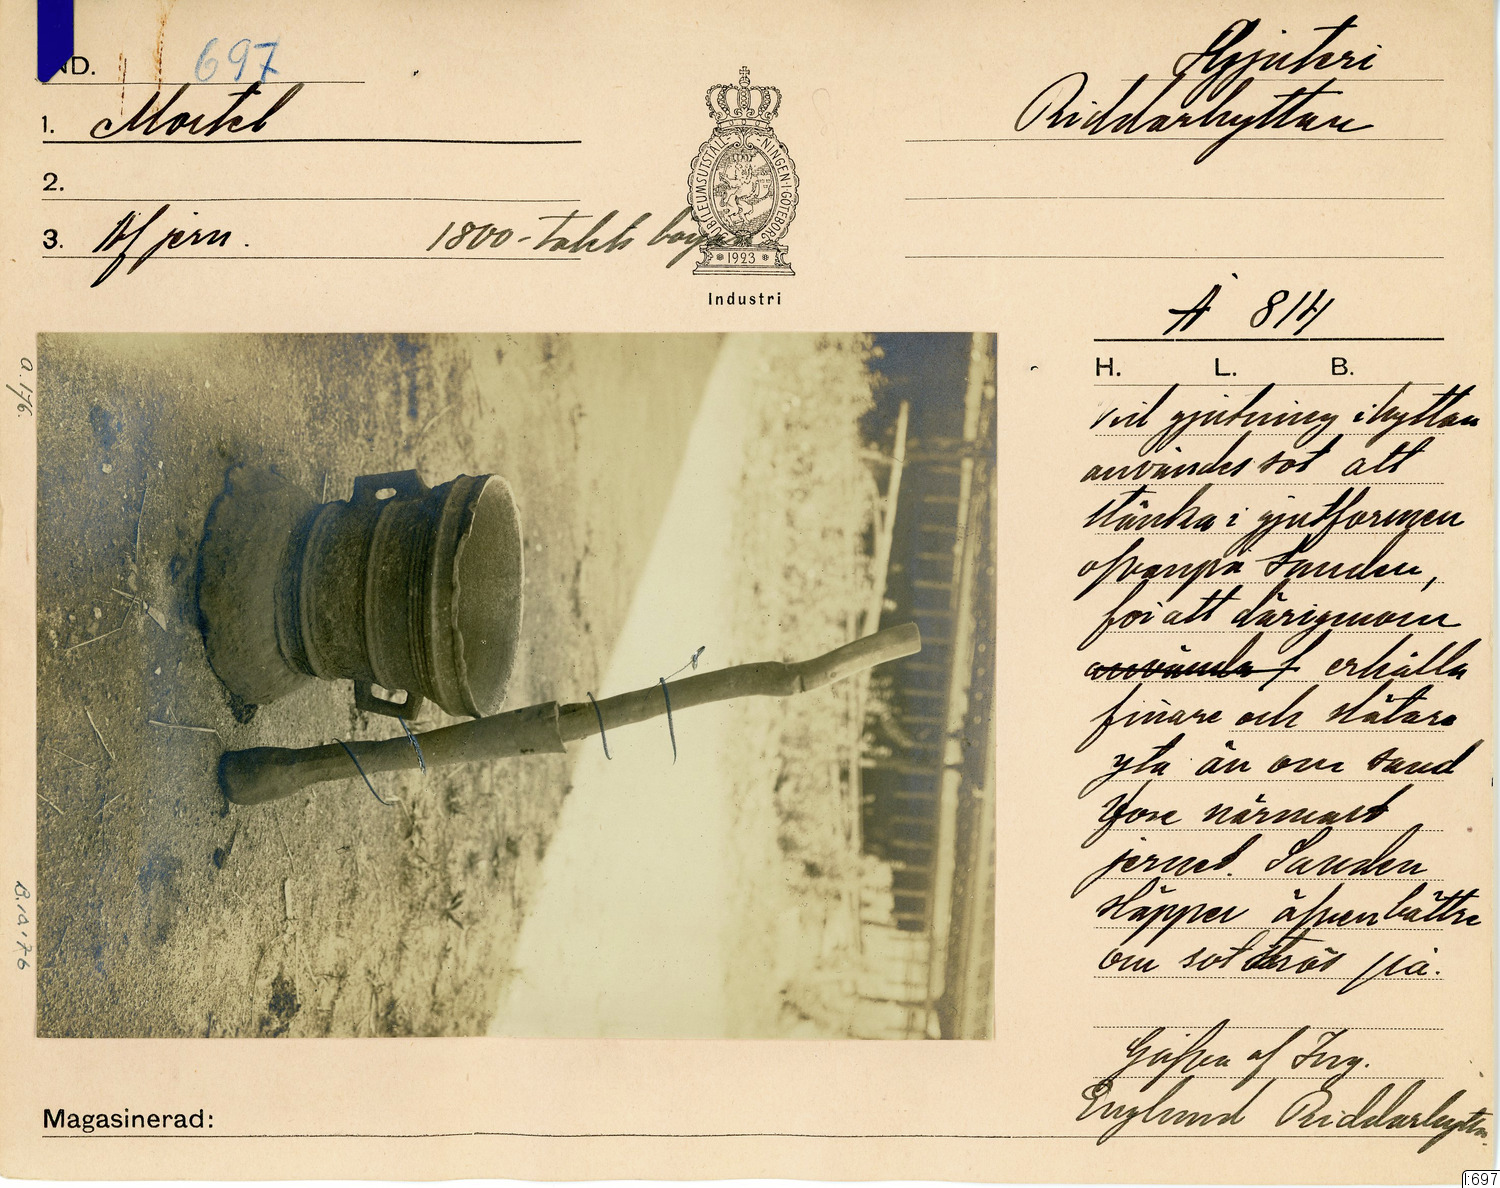 ND. 697
Gjuteri
1. Mortel
Riddarhyttan
2.
3. Af jern. 1800-talets början
JUBILEUMSUTSTÄLLNINGEN·I·GÖTEBORG
1923
Industri
A 814
H. L. B.
Vid gjutning i hyttan
användes sot att
stänka i gjutformen
ofvanpå sanden,
för att därigenom
använda f erhålla
finare och slätare
yta än om sand
vore närmast
jernet. Sanden
släpper äfven bättre
om sot strös på.
Gåfva af Ing.
Englund Riddarhyttan.
Magasinerad:
a. 176.
B. 10 . 76
I:697